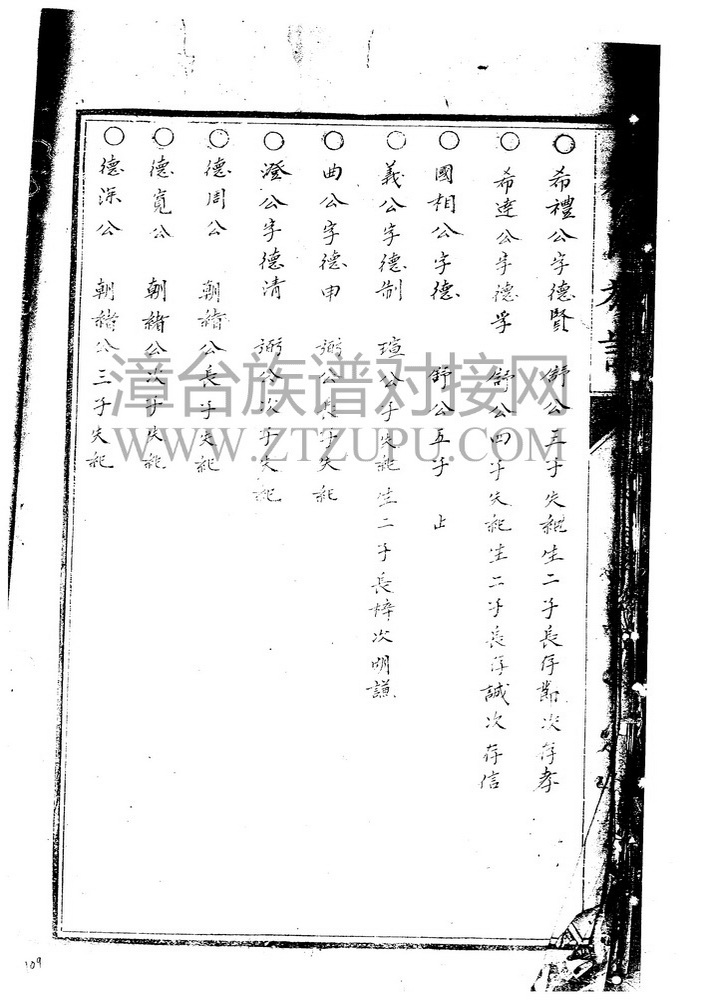 ○希禮公字德賢 舒公三子失紀生二子長存鄰次存孝
○希達公字德孚 舒公四子失紀生二子長存誠次存信
○國相公字德 舒公五子 止
○義公字德制 瑄公子失紀生二子長梓次明謙
○曲公字德申 弼公長子失紀
○澄公字德清 弼公次子失紀
○德周公 朝緒公長子失紀
○德寬公 朝緒公次子失紀
○德深公 朝緒公三子失紀
漳台族谱对接网
WWW.ZTZUPU.COM
109